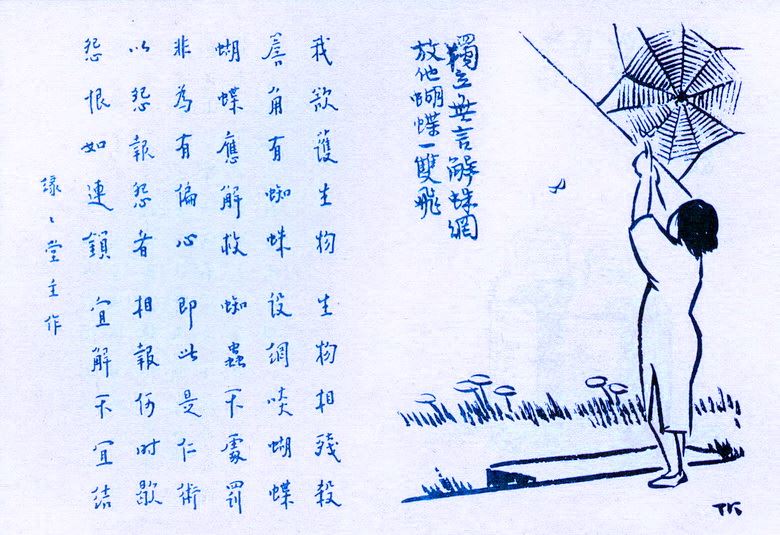 獨立無言解蛛網
放他蝴蝶一雙飛
我欲護生物 生物相殘殺
簷角有蜘蛛 設網啖蝴蝶
蝴蝶應解救 蜘蟲不處罰
非為有偏心 即此是仁術
以怨報怨者 相報何時歇
怨恨如連鎖 宜解不宜結
緣〻堂主作
TK